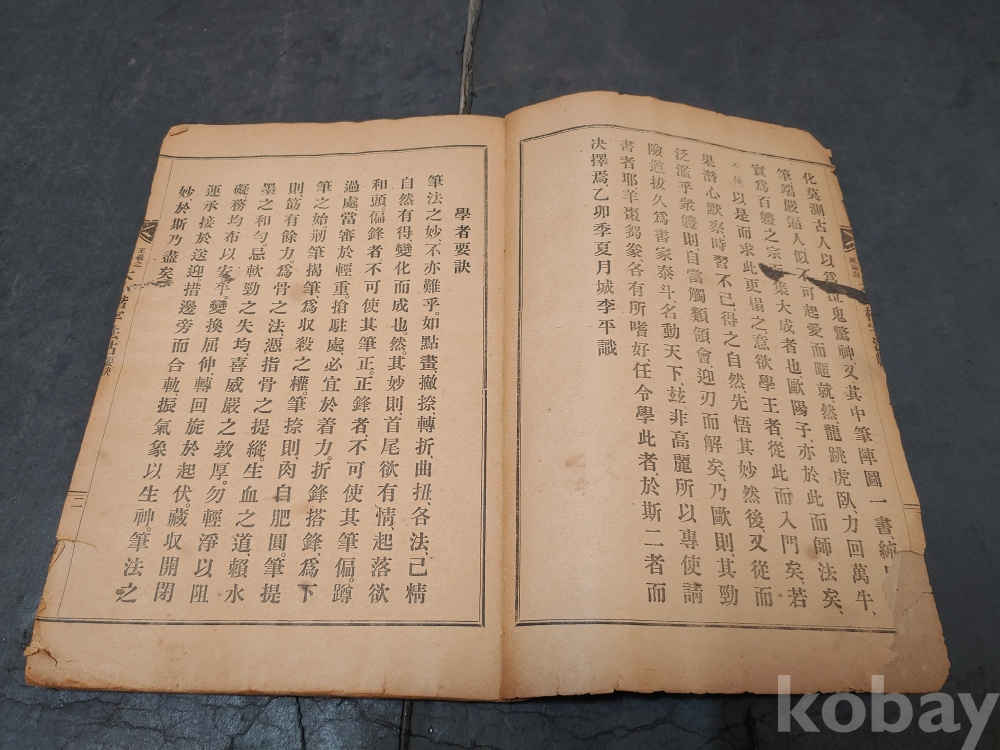 化莫測古人以爲泣鬼驚神又其中筆陣圖一書、
筆端嚴逼人似不可起愛而隨就、然龍跳虎臥、力回萬牛、
實爲百軆之宗而集大成者也歐陽子、亦於此而師法矣、
以是而求此更榻之意欲學王者從此而入門矣、若
果潛心默察、時習不已、得之自然、先悟其妙然後、又從而
泛濫乎衆軆則、自當觸類領會、迎刃而解矣、乃歐則、其勁
險遒拔久爲書家泰斗名動天下、玆非高麗所以專使請
書者耶羊棗芻豢各有所嗜好、任令學此者、於斯二者而
决擇焉、乙卯季夏月城李平識
學者要訣
筆法之妙、不亦難乎。如點畫、撇捺、轉折、曲扭、各法、己精
自然有得變化而成也。然、其妙則、首尾欲有、情、起落欲
和頭偏鋒者、不可使其筆正。正鋒者、不可使其筆偏。蹲
過處當審於輕重。搶駐處必宜於着力。折鋒搭鋒、爲下
筆之始。剏筆揭筆、爲收殺之權。筆捺則、肉自肥圓。筆提
則筋有餘力。爲骨之法、憑指骨之提縱。生血之道、賴水
墨之和勻。忌軟勁之失均、喜威嚴之敦厚。勿輕淨以阻
礙務均布以安平。變換屈伸、轉回旋於起伏。藏収開閉
運承接於送迎。措邊旁而合軌。振氣象以生神。筆法之
妙、於斯乃盡矣
王羲之
二
kobay